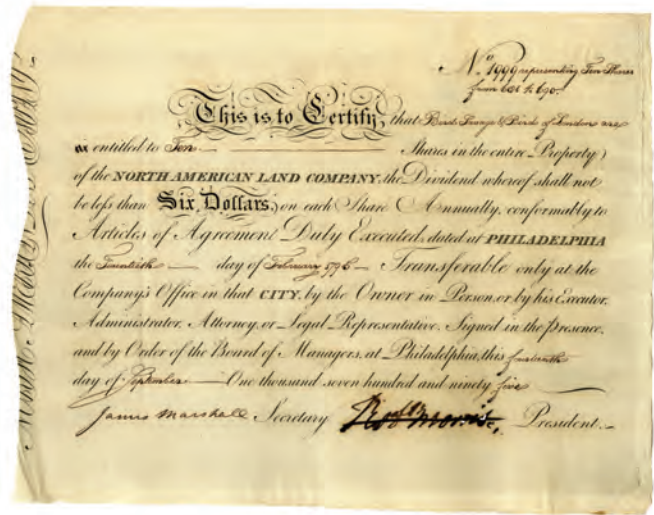 No. 1999 representing Ten Shares
from 681 to 690.
This is to Certify, that Bird Savage & Bird of London are
entitled to Ten Shares in the entire Property
of the NORTH AMERICAN LAND COMPANY, the Dividend whereof shall not
be less than Six Dollars, on each Share Annually, conformably to
Articles of Agreement Duly Executed, dated at PHILADELPHIA
the Twentieth day of February 1795 Transferable only at the
Company's Office in that CITY, by the Owner in Person, or by his Executor,
Administrator, Attorney, or Legal Representative. Signed in the Presence,
and by Order of the Board of Managers, at Philadelphia, this
day of September One thousand seven hundred and ninety five
James Marshall Secretary Robt Morris. President.